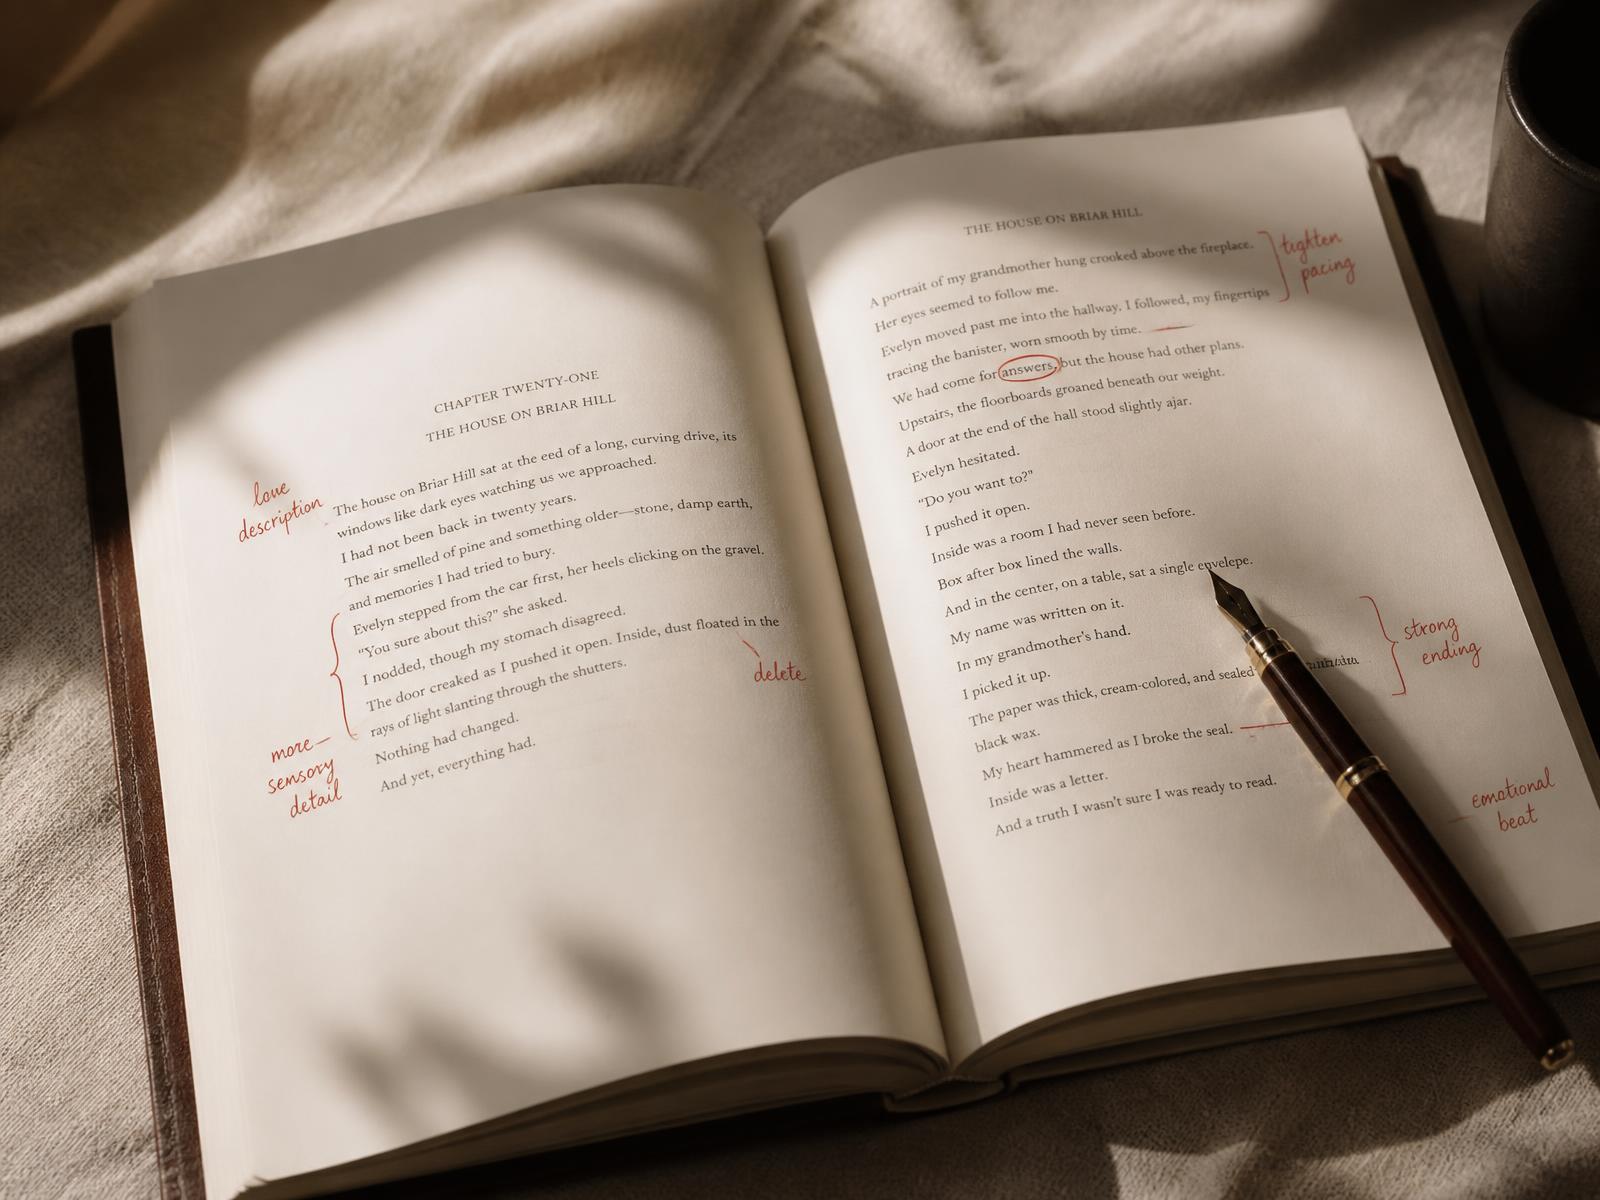 CHAPTER TWENTY-ONE
THE HOUSE ON BRIAR HILL
The house on Briar Hill sat at the eed of a long, curving drive, its
windows like dark eyes watching us we approached.
I had not been back in twenty years.
The air smelled of pine and something older—stone, damp earth,
and memories I had tried to bury.
Evelyn stepped from the car first, her heels clicking on the gravel.
"You sure about this?" she asked.
I nodded, though my stomach disagreed.
The door creaked as I pushed it open. Inside, dust floated in the
rays of light slanting through the shutters.
Nothing had changed.
And yet, everything had.
description
more
sensory
detail
delete
THE HOUSE ON BRIAR HILL
A portrait of my grandmother hung crooked above the fireplace.
Her eyes seemed to follow me.
Evelyn moved past me into the hallway. I followed, my fingertips
tracing the banister, worn smooth by time.
We had come for answers, but the house had other plans.
Upstairs, the floorboards groaned beneath our weight.
A door at the end of the hall stood slightly ajar.
Evelyn hesitated.
"Do you want to?"
I pushed it open.
Inside was a room I had never seen before.
Box after box lined the walls.
And in the center, on a table, sat a single envelepe.
My name was written on it.
In my grandmother's hand.
I picked it up.
The paper was thick, cream-colored, and sealed
black wax.
My heart hammered as I broke the seal.
Inside was a letter.
And a truth I wasn't sure I was ready to read.
tighten
pacing
strong
ending
emotional
beat